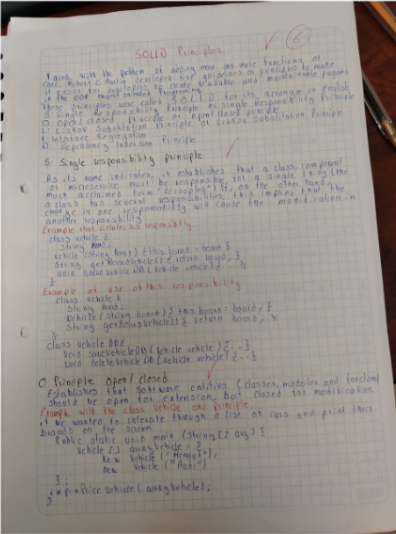 SOLID Principles
Faced with the problem of adding more and more functions of
Code, Robert C. Martin developed five guidelines or principles to make
it easier for developers to create readable and maintainable programs
in the OOP object oriented Programming
These principles were called S.O.L.I.D for its acronym in English
S: Single Responsibility Principle or Single Responsibility Principle
O: Open/closed Principle or open/closed principle
L: Liskov Substitution Principle or Liskov Substitution Principle
I: Interface Segregation
D: Dependency Inversion Principle
S: Single responsibility principle
As its name indicates, it establishes that a class, component
or microservice must be responsible for a single thing (the
much acclaimed term "decoupled") If, on the other hand,
a class has several responsibilities, this implies that the
change in one responsibility will cause the modification in
another responsibility.
Example that violates his responsibility
class vehicle {
String
vehicle (String board) { this.board = board }
String getBoardVehicle() { return board; }
void saveVehicleDB (Vehicle vehicle) {...}
}
Example of use of this responsibility
class vehicle {
String
Vehicle (String board) { this.board = board; }
String getBoardVehicle() { return board; }
}
class VehicleDB {
void saveVehicleDB (Vehicle vehicle) {...}
void deleteVehicleDB (Vehicle vehicle) {...}
}
O Principle open/closed
Establishes that software entities (classes, modules and function)
Should be open for extension, but closed for modification.
Example with the class vehicle and principle
if we wanted to interate through a list of cars and print their
brands on the screen
Public static void main (String[] arg) {
Vehicle [] arrayVehicle = {
new Vehicle ("Renault"),
new Vehicle ("Audi")
};
PriceVehicle (arrayVehicle);
}